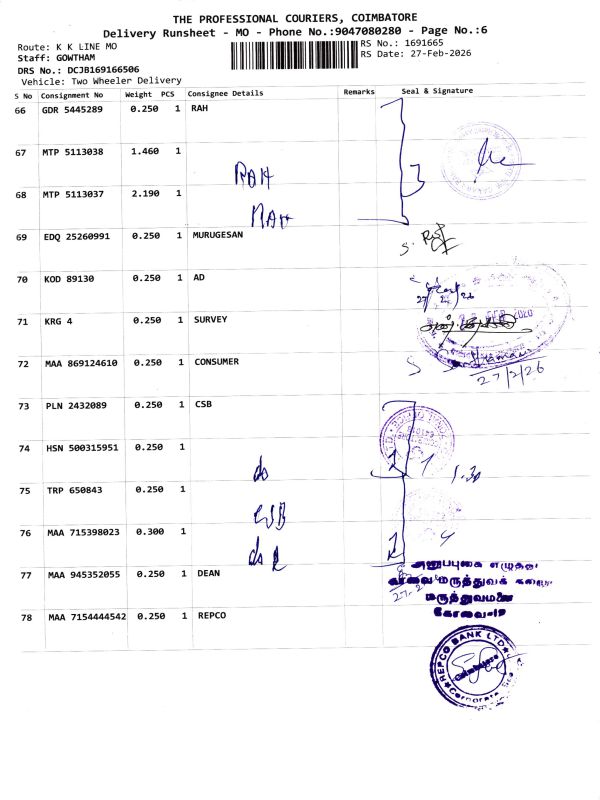 THE PROFESSIONAL COURIERS, COIMBATORE
Delivery Runsheet - MO - Phone No.:9047080280 - Page No.:6
Route: K K LINE MO
RS No.: 1691665
Staff: GOWTHAM
RS Date: 27-Feb-2026
DRS No.: DCJB169166506
Vehicle: Two Wheeler Delivery
S No Consignment No Weight PCS Consignee Details Remarks Seal & Signature
66 GDR 5445289 0.250 1 RAH
67 MTP 5113038 1.460 1
RAH
68 MTP 5113037 2.190 1
RAH
69 EDQ 25260991 0.250 1 MURUGESAN
70 KOD 89130 0.250 1 AD
71 KRG 4 0.250 1 SURVEY
72 MAA 869124610 0.250 1 CONSUMER
27/2/26
73 PLN 2432089 0.250 1 CSB
74 HSN 500315951 0.250 1
do
1.30
75 TRP 650843 0.250 1
CSB
76 MAA 715398023 0.300 1
do
77 MAA 945352055 0.250 1 DEAN
மருத்துவமனை
கோவை-18
78 MAA 7154444542 0.250 1 REPCO
REPCO BANK LTD
Coimbatore